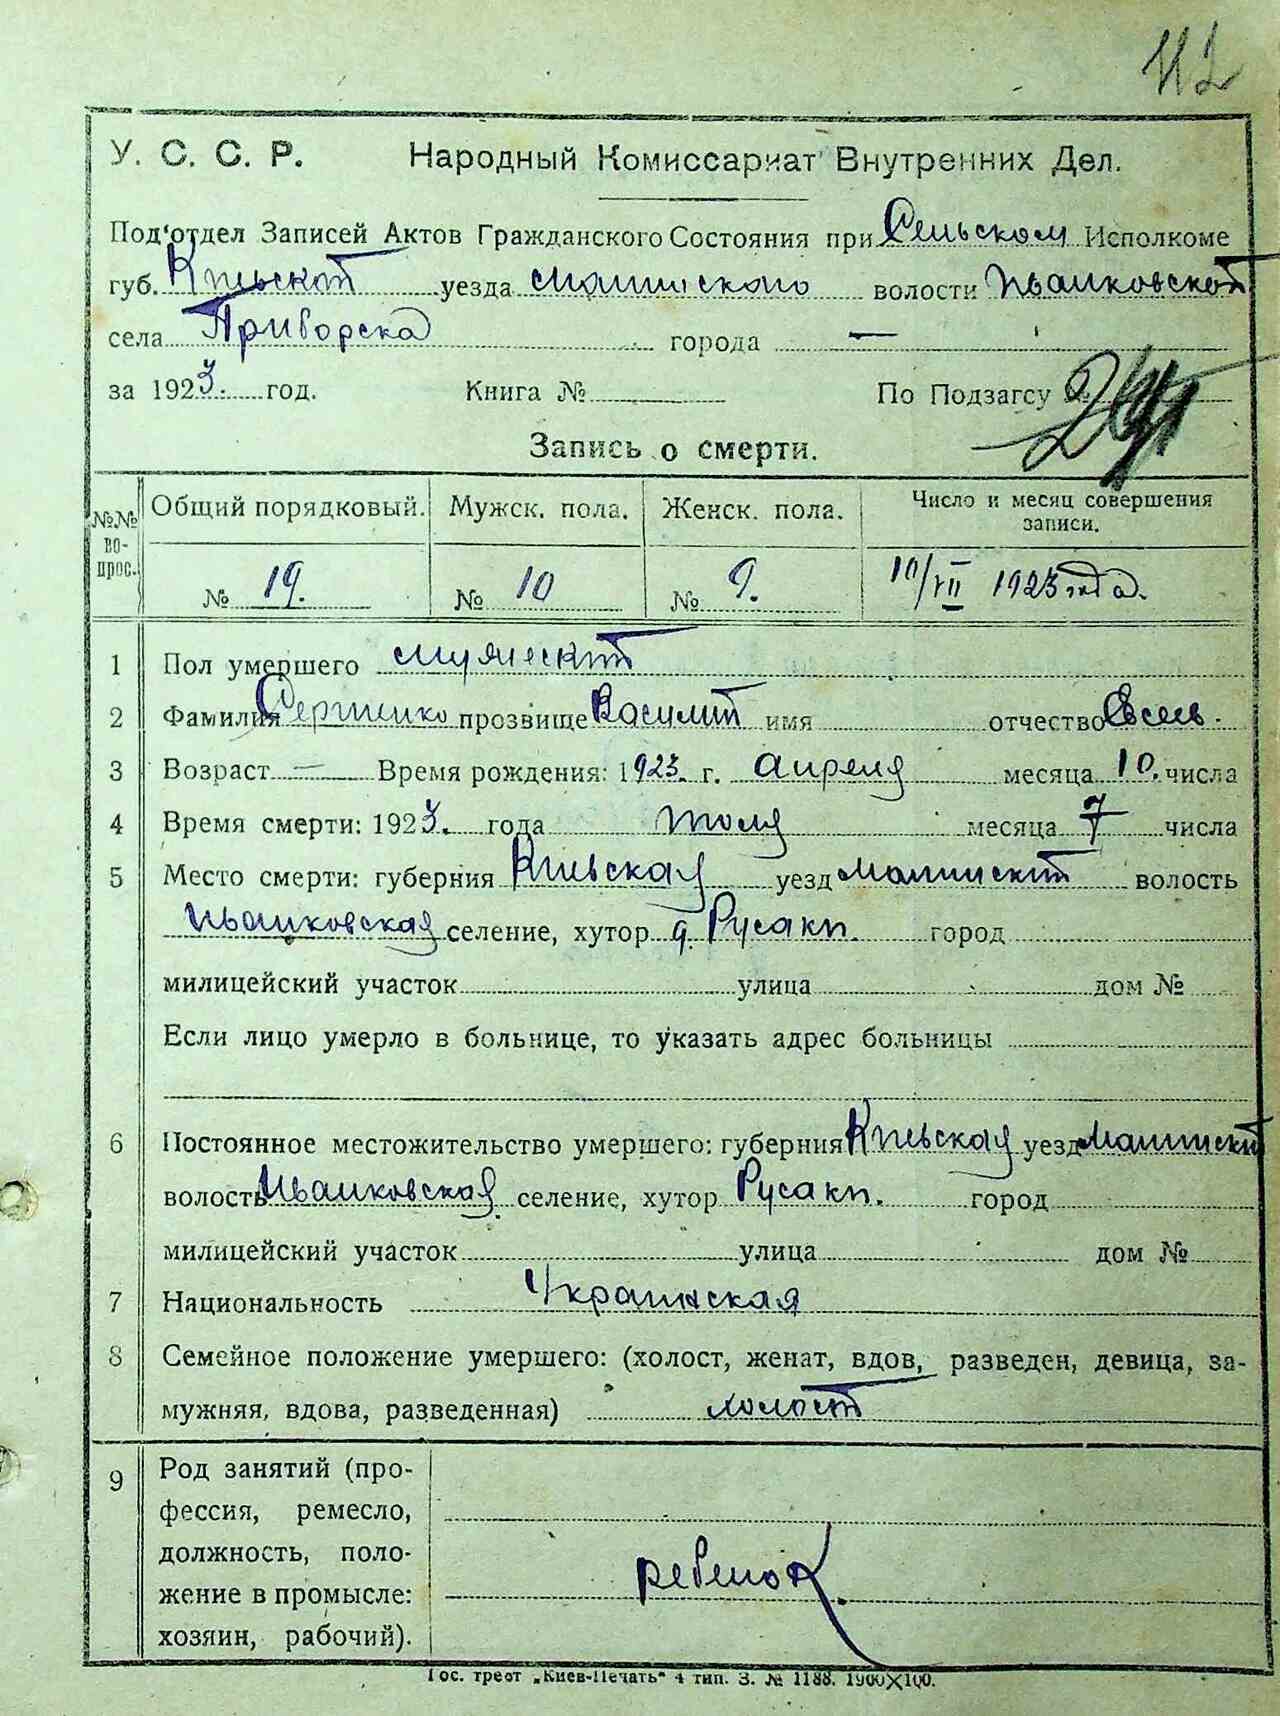 112
У. С. С. Р. Народный Комиссариат Внутренних Дел.
Под'отдел Записей Актов Гражданского Состояния при Сельском Исполкоме
губ. Киевской уезда Малинского волости Иванковской
села Приборска города —
за 1923. год. Книга № По Подзагсу №
Запись о смерти.
№№ вопрос. Общий порядковый. Мужск. пола. Женск. пола. Число и месяц совершения записи.
№ 19. № 10 № 9. 10/VII 1923 года.
1 Пол умершего мужеской
2 Фамилия Сергиенко прозвище Василий имя отчество Евсев.
3 Возраст — Время рождения: 1923. г. апреля месяца 10. числа
4 Время смерти: 1923. года июля месяца 7 числа
5 Место смерти: губерния Киевская уезд Малинский волость
Иванковская селение, хутор д. Русаки. город
милицейский участок улица дом №
Если лицо умерло в больнице, то указать адрес больницы
6 Постоянное местожительство умершего: губерния Киевская уезд Малинский
волость Иванковская селение, хутор Русаки. город
милицейский участок улица дом №
7 Национальность Украинская
8 Семейное положение умершего: (холост, женат, вдов, разведен, девица, за-
мужняя, вдова, разведенная) холост
9 Род занятий (про-
фессия, ремесло,
должность, поло-
жение в промысле: ребенок
хозяин, рабочий).
Гос. трест „Киев-Печать" 4 тип. З. № 1188. 1900×100.